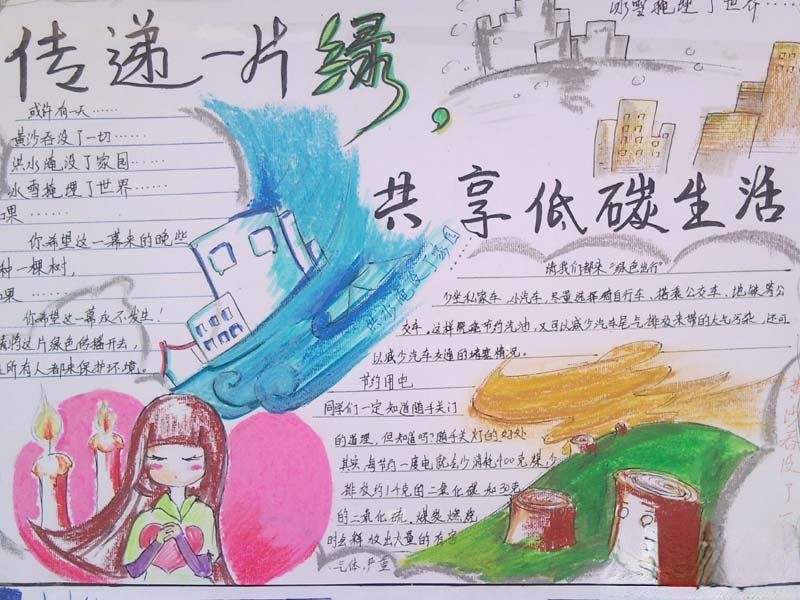 传递一片绿,
冰雪掩埋了世界……
共享低碳生活
或许有一天……
黄沙吞没了一切……
洪水淹没了家园……
冰雪掩埋了世界……
果……
你希望这一幕来的晚些
种一棵树,
果……
你希望这一幕永不发生!
将这片绿色传播开去,
所有人都来保护环境。
洪水淹没了家园……
请我们都来“绿色出行”
少坐私家车、小汽车,尽量选择骑自行车、搭乘公交车、地铁等公
交车。这样既能节约汽油,又可以减少汽车尾气排放来带的大气污染,还可
以减少汽车交通的堵塞情况。
节约用电
同学们一定知道随手关门
的道理,但知道吗?随手关灯的好处
其实,每节约一度电就会少消耗400克煤,少
排放约1千克的二氧化碳和30克
的二氧化硫。煤炭燃烧
时会释放出大量的有害
气体,严重
黄沙吞没了一